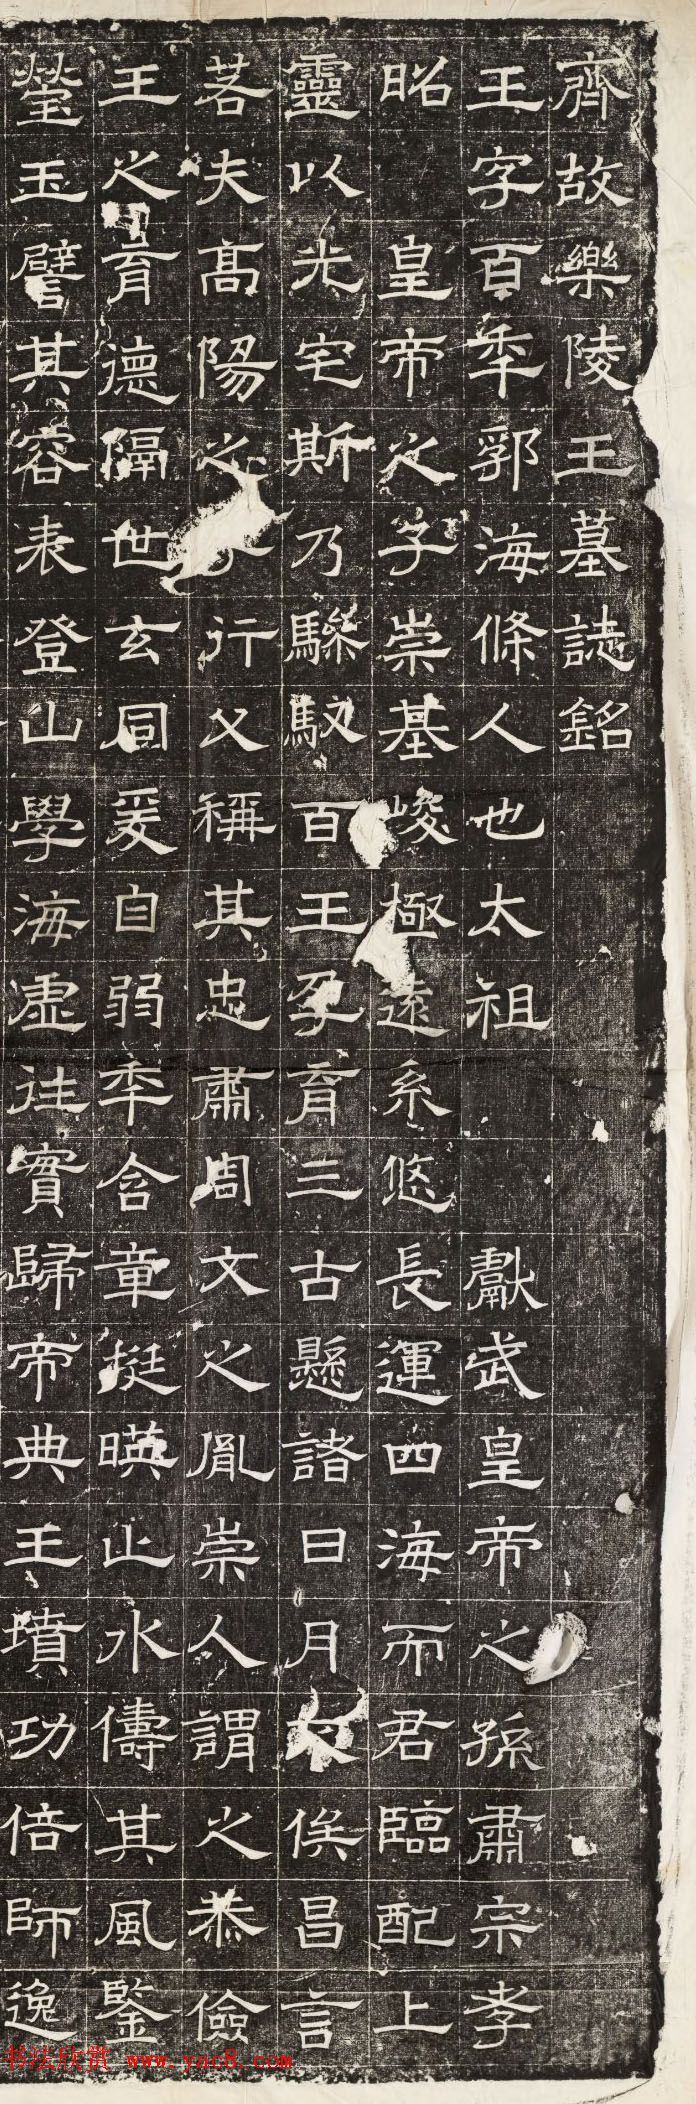 齊故樂陵王墓誌銘
王字百年郣海條人也太祖獻武皇帝之孫肅宗孝
昭皇帝之子崇基峻極遠系悠長運四海而君臨配上
靈以光宅斯乃驂馭百王孕育三古懸諸日月俟昌言
若夫高陽之子行父稱其忠肅周文之胤崇人謂之恭儉
王之育德隔世玄同爰自弱年含章挺暎止水儔其風鑒
瑩玉譬其容表登山學海虛往實歸帝典王墳功倍師逸
书法欣赏 www.yac8.com